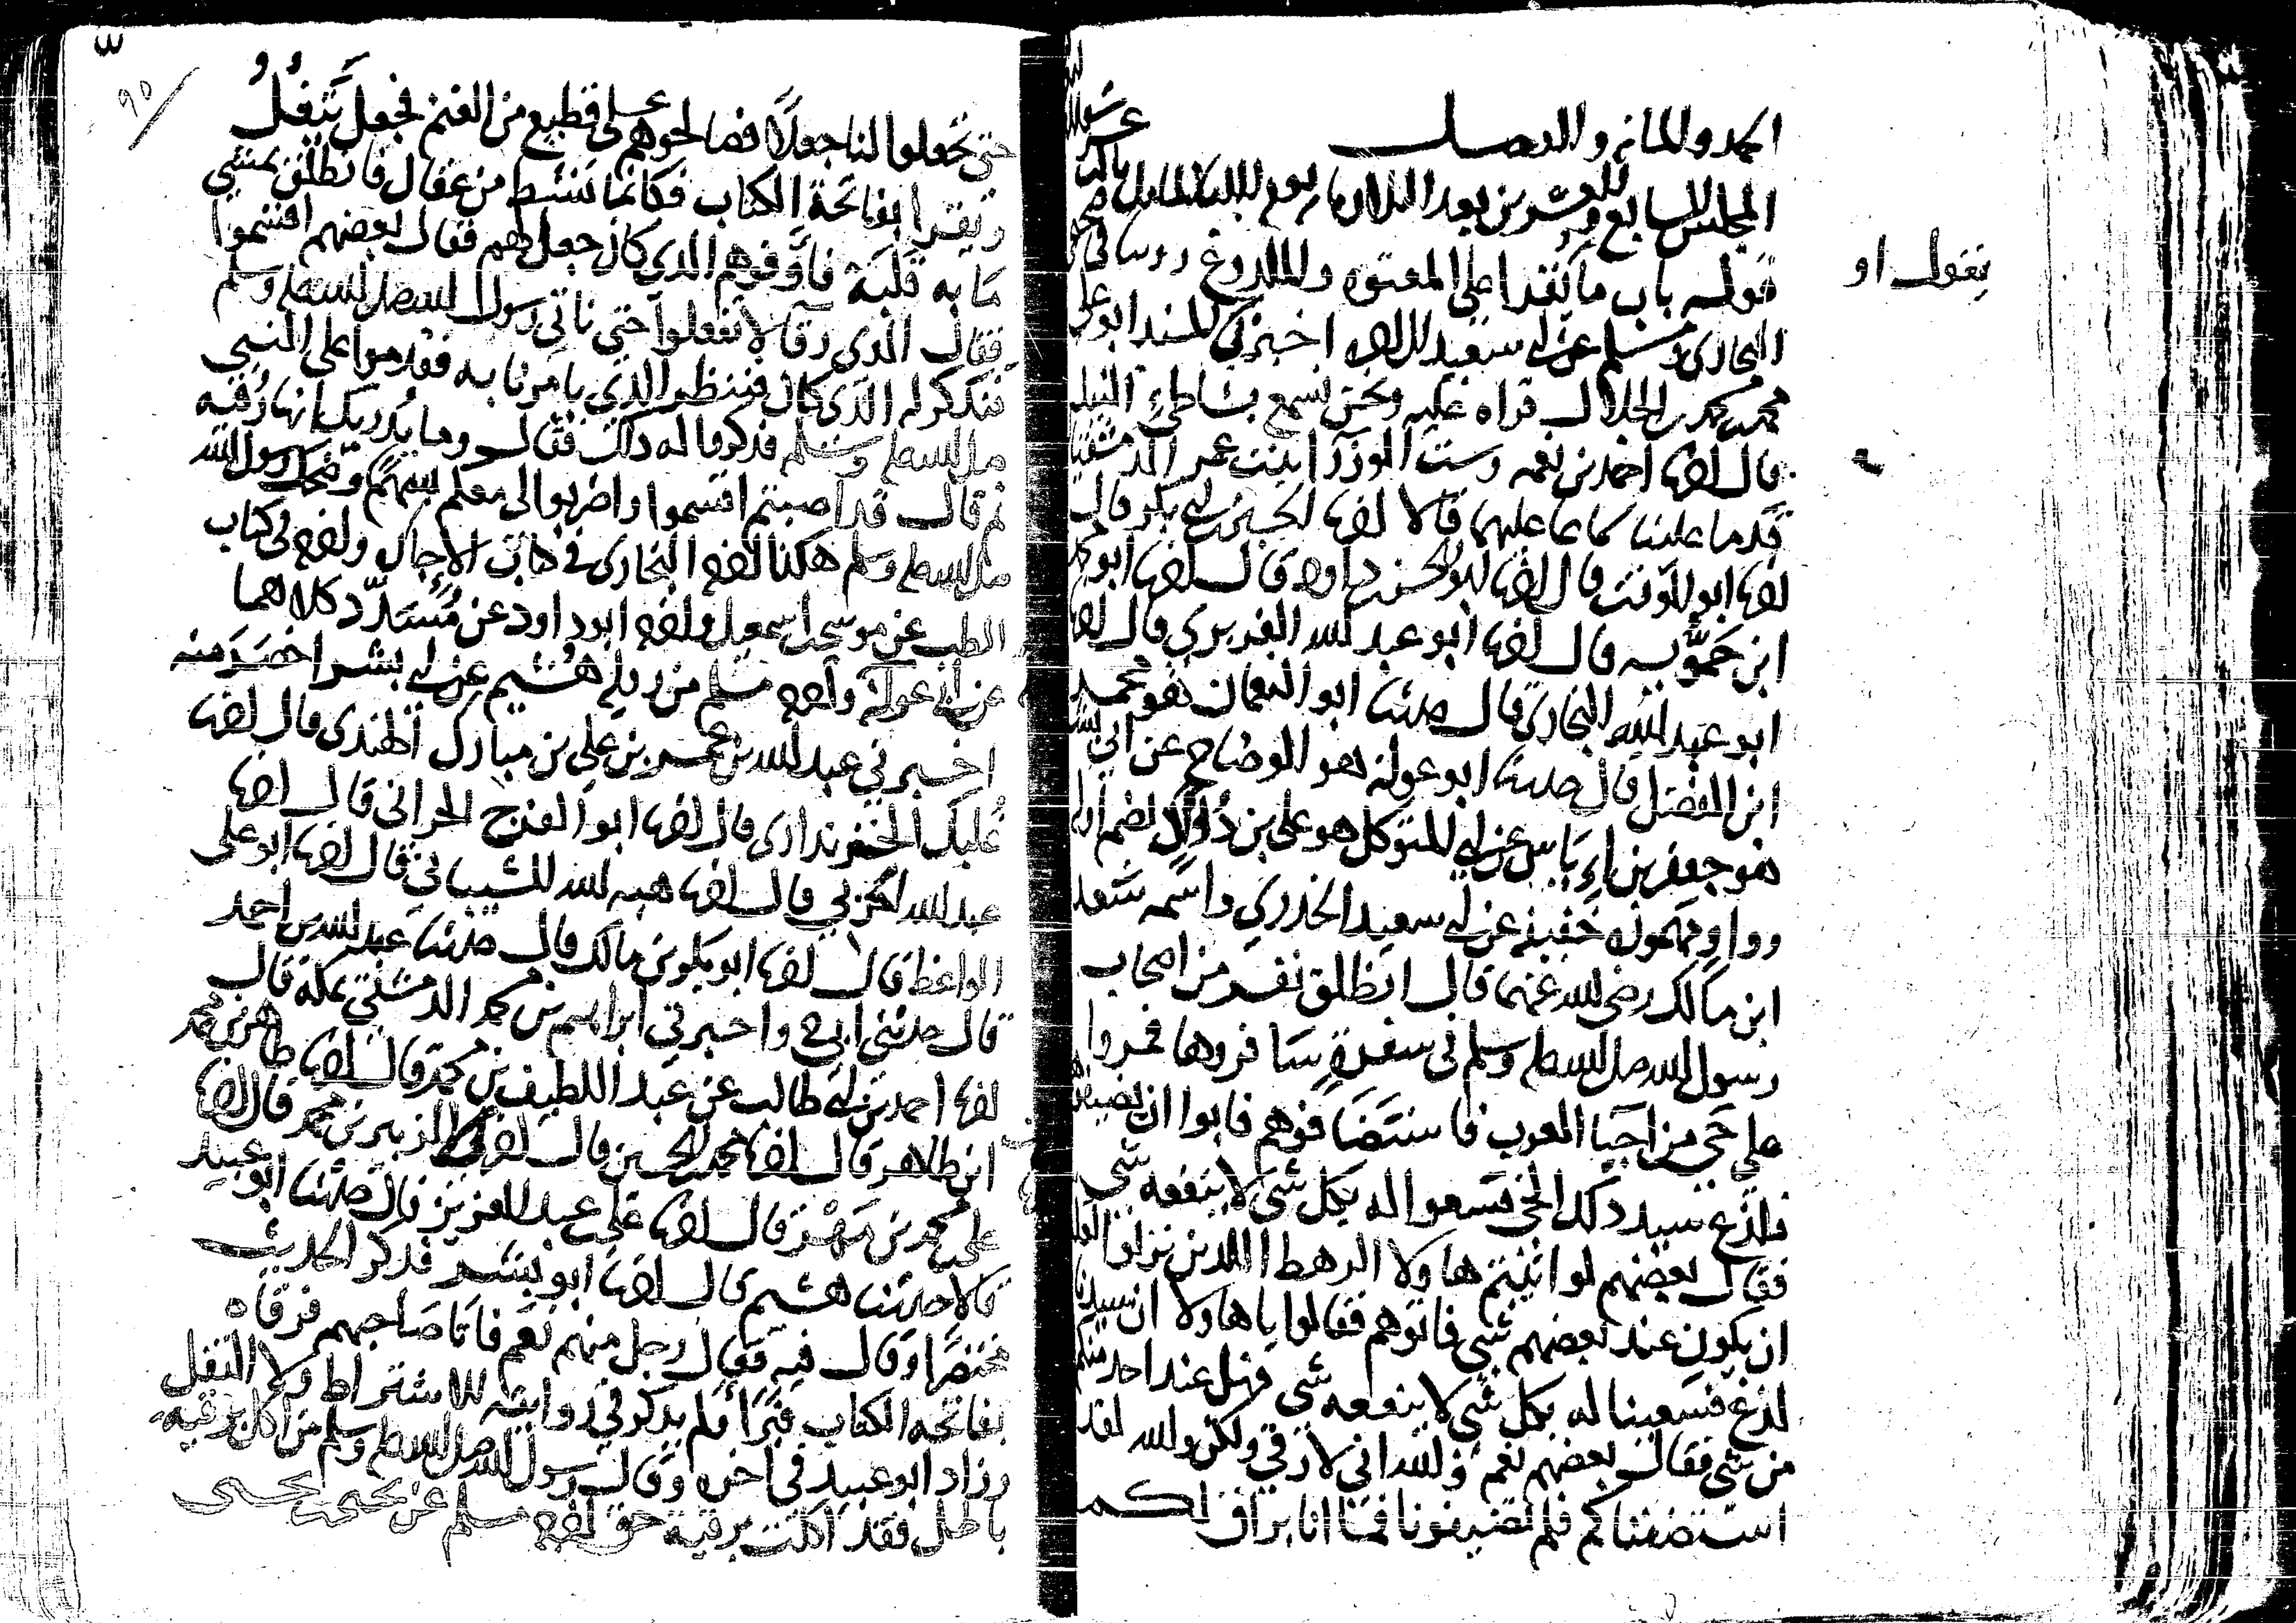 يقول او
الحمد والمانه
المجلس السابع والعشرين بعد
قوله باب ما يقرا على المعتوه والملدوغ
البخاري ومسلم عن ابي سعيد اخبرني المسند ابو علي
محمد بن محمد بن الجلال قراه عليه ونحن نسمع بشاطئ النيل
قال احمد بن نعمه وست الوزرا بنت عمر الدمشقيا
قدما علينا سماعا عليهما قالا ابي بكر قال
ابو الوقت قال ابو الحسن داود قال ابو محمد
ابن حمويه قال ابو عبد الله الفربري قال
ابو عبد الله البخاري قال حدثنا ابو النعمان هو محمد
ابن الفضل قال حدثنا ابو عوانه هو الوضاح عن ابي بشر
هو جعفر بن اياس عن ابي المتوكل هو علي بن دؤاد بضم الدال
وواو مهموزه خفيفه عن ابي سعيد الخدري واسمه سعد
ابن مالك رضي الله عنهما قال انطلق نفر من اصحاب
رسول الله صلى الله عليه وسلم في سفرة سافروها فمروا
على حي من احيا العرب فاستضافوهم فابوا ان يضيفوهم
فلدغ سيد ذلك الحي فسعوا له بكل شي لا ينفعه شي
فقال بعضهم لو اتيتم هاولا الرهط الذين نزلوا لعله
ان يكون عند بعضهم شي فاتوهم فقالوا ياهاولا ان سيدنا
لدغ فسعينا له بكل شي لا ينفعه شي فهل عند احد منكم
من شي فقال بعضهم نعم والله اني لارقي ولكن والله لقد
استضفناكم فلم تضيفونا فما انا براق لكم
٩٥
حتى تجعلوا لنا جعلا فصالحوهم على قطيع من الغنم فجعل يتفل
ويقرا بفاتحة الكتاب فكانما نشط من عقال فانطلق يمشي
ما به قلبة فاوفوهم الذي كان جعل لهم فقال بعضهم اقتسموا
فقال الذي رقا لا تفعلوا حتى ناتي رسول الله صلى الله عليه وسلم
فنذكر له الذي كان فننظر الذي يامرنا به فقدموا على النبي
صلى الله عليه وسلم فذكروا له ذلك فقال وما يدريك انها رقيه
ثم قال قد اصبتم اقتسموا واضربوا لي معكم بسهم وضحك رسول الله
صلى الله عليه وسلم هكذا البخاري في كتاب الاجاره وفي كتاب
الطب عن موسى بن اسمعيل ابو داود عن مسدد كلاهما
عن ابي عوانة مسلم من رواية هشيم عن ابي بشر اخصر منه
اخبرني عبد الله بن عمر بن علي بن مبارك الهندي قال
عليك قال ابو الفرج الحراني قال
عبد الله الحربي قال هبه الله الشيباني قال ابو علي
الواعظ قال ابو بكر بن مالك قال حدثنا عبد الله بن احمد
قال حدثني ابي ح واخبرني ابراهيم بن محمد الدمشقي بمكة قال
احمد بن ابي طالب عن عبد اللطيف بن محمد قال طاهر بن محمد
ابن طاهر قال محمد بن الحسين قال الزبير بن محمد قال
علي بن محمد بن مهرة قال علي بن عبد العزيز قال حدثنا ابو عبيد
قالا حدثنا هشيم قال ابو بشر فذكر الحديث
مختصرا وقال فيه فقال رجل منهم نعم فاتا صاحبهم فرقاه
بفاتحه الكتاب فبرا فلم يذكر في روايته الاشتراط ولا التفل
وزاد ابو عبيد في اخره وقال رسول الله صلى الله عليه وسلم من اكل برقيه
باطل فقد اكلت برقية حق مسلم عن يحيى بن يحيى